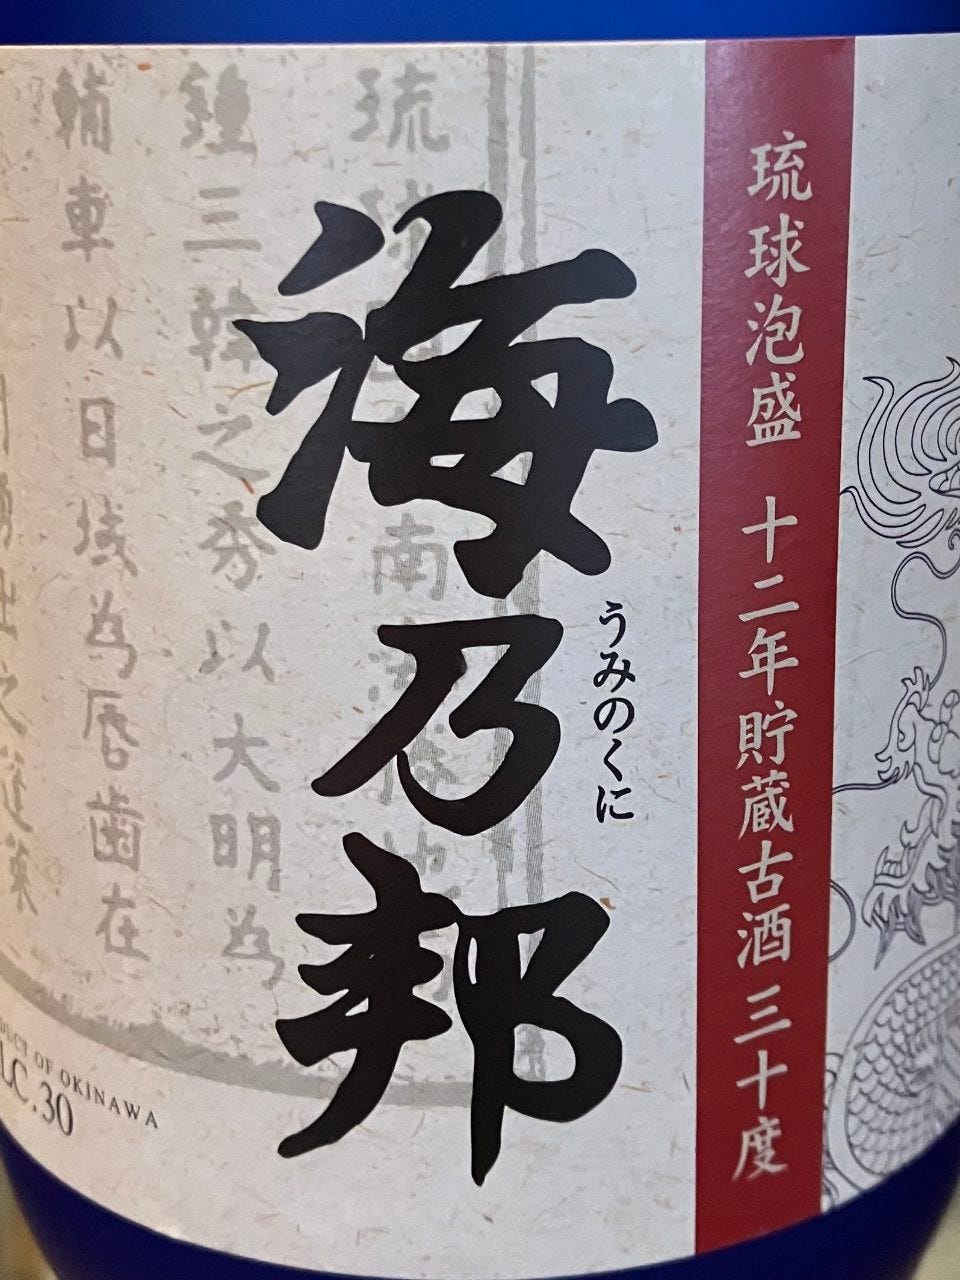 琉球泡盛 十二年貯蔵古酒 三十度
海乃邦
うみのくに
琉
南
鐘三韓之秀以大明為
輔車以日域為唇歯在
DUCT OF OKINAWA
LC.30